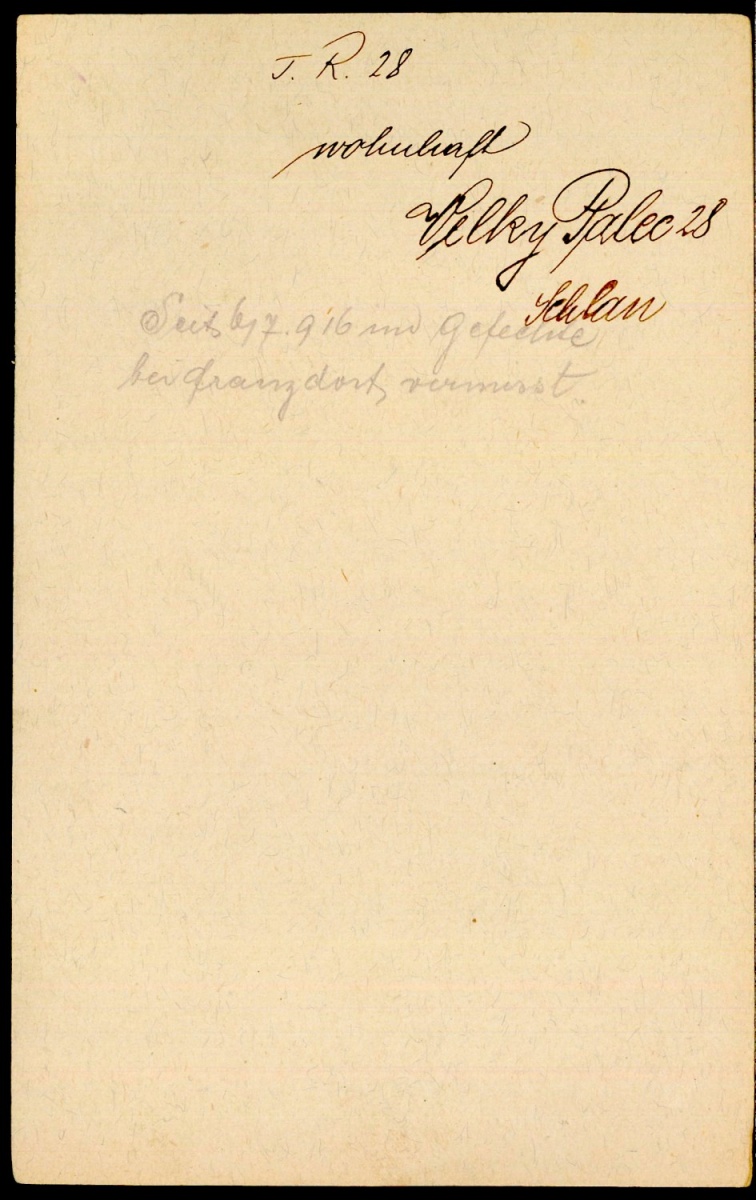 J. R. 28
wohnhaft
Velky Palec 28
Schlan
Seit 6/7. 916 im Gefechte
bei Franzdorf vermisst.